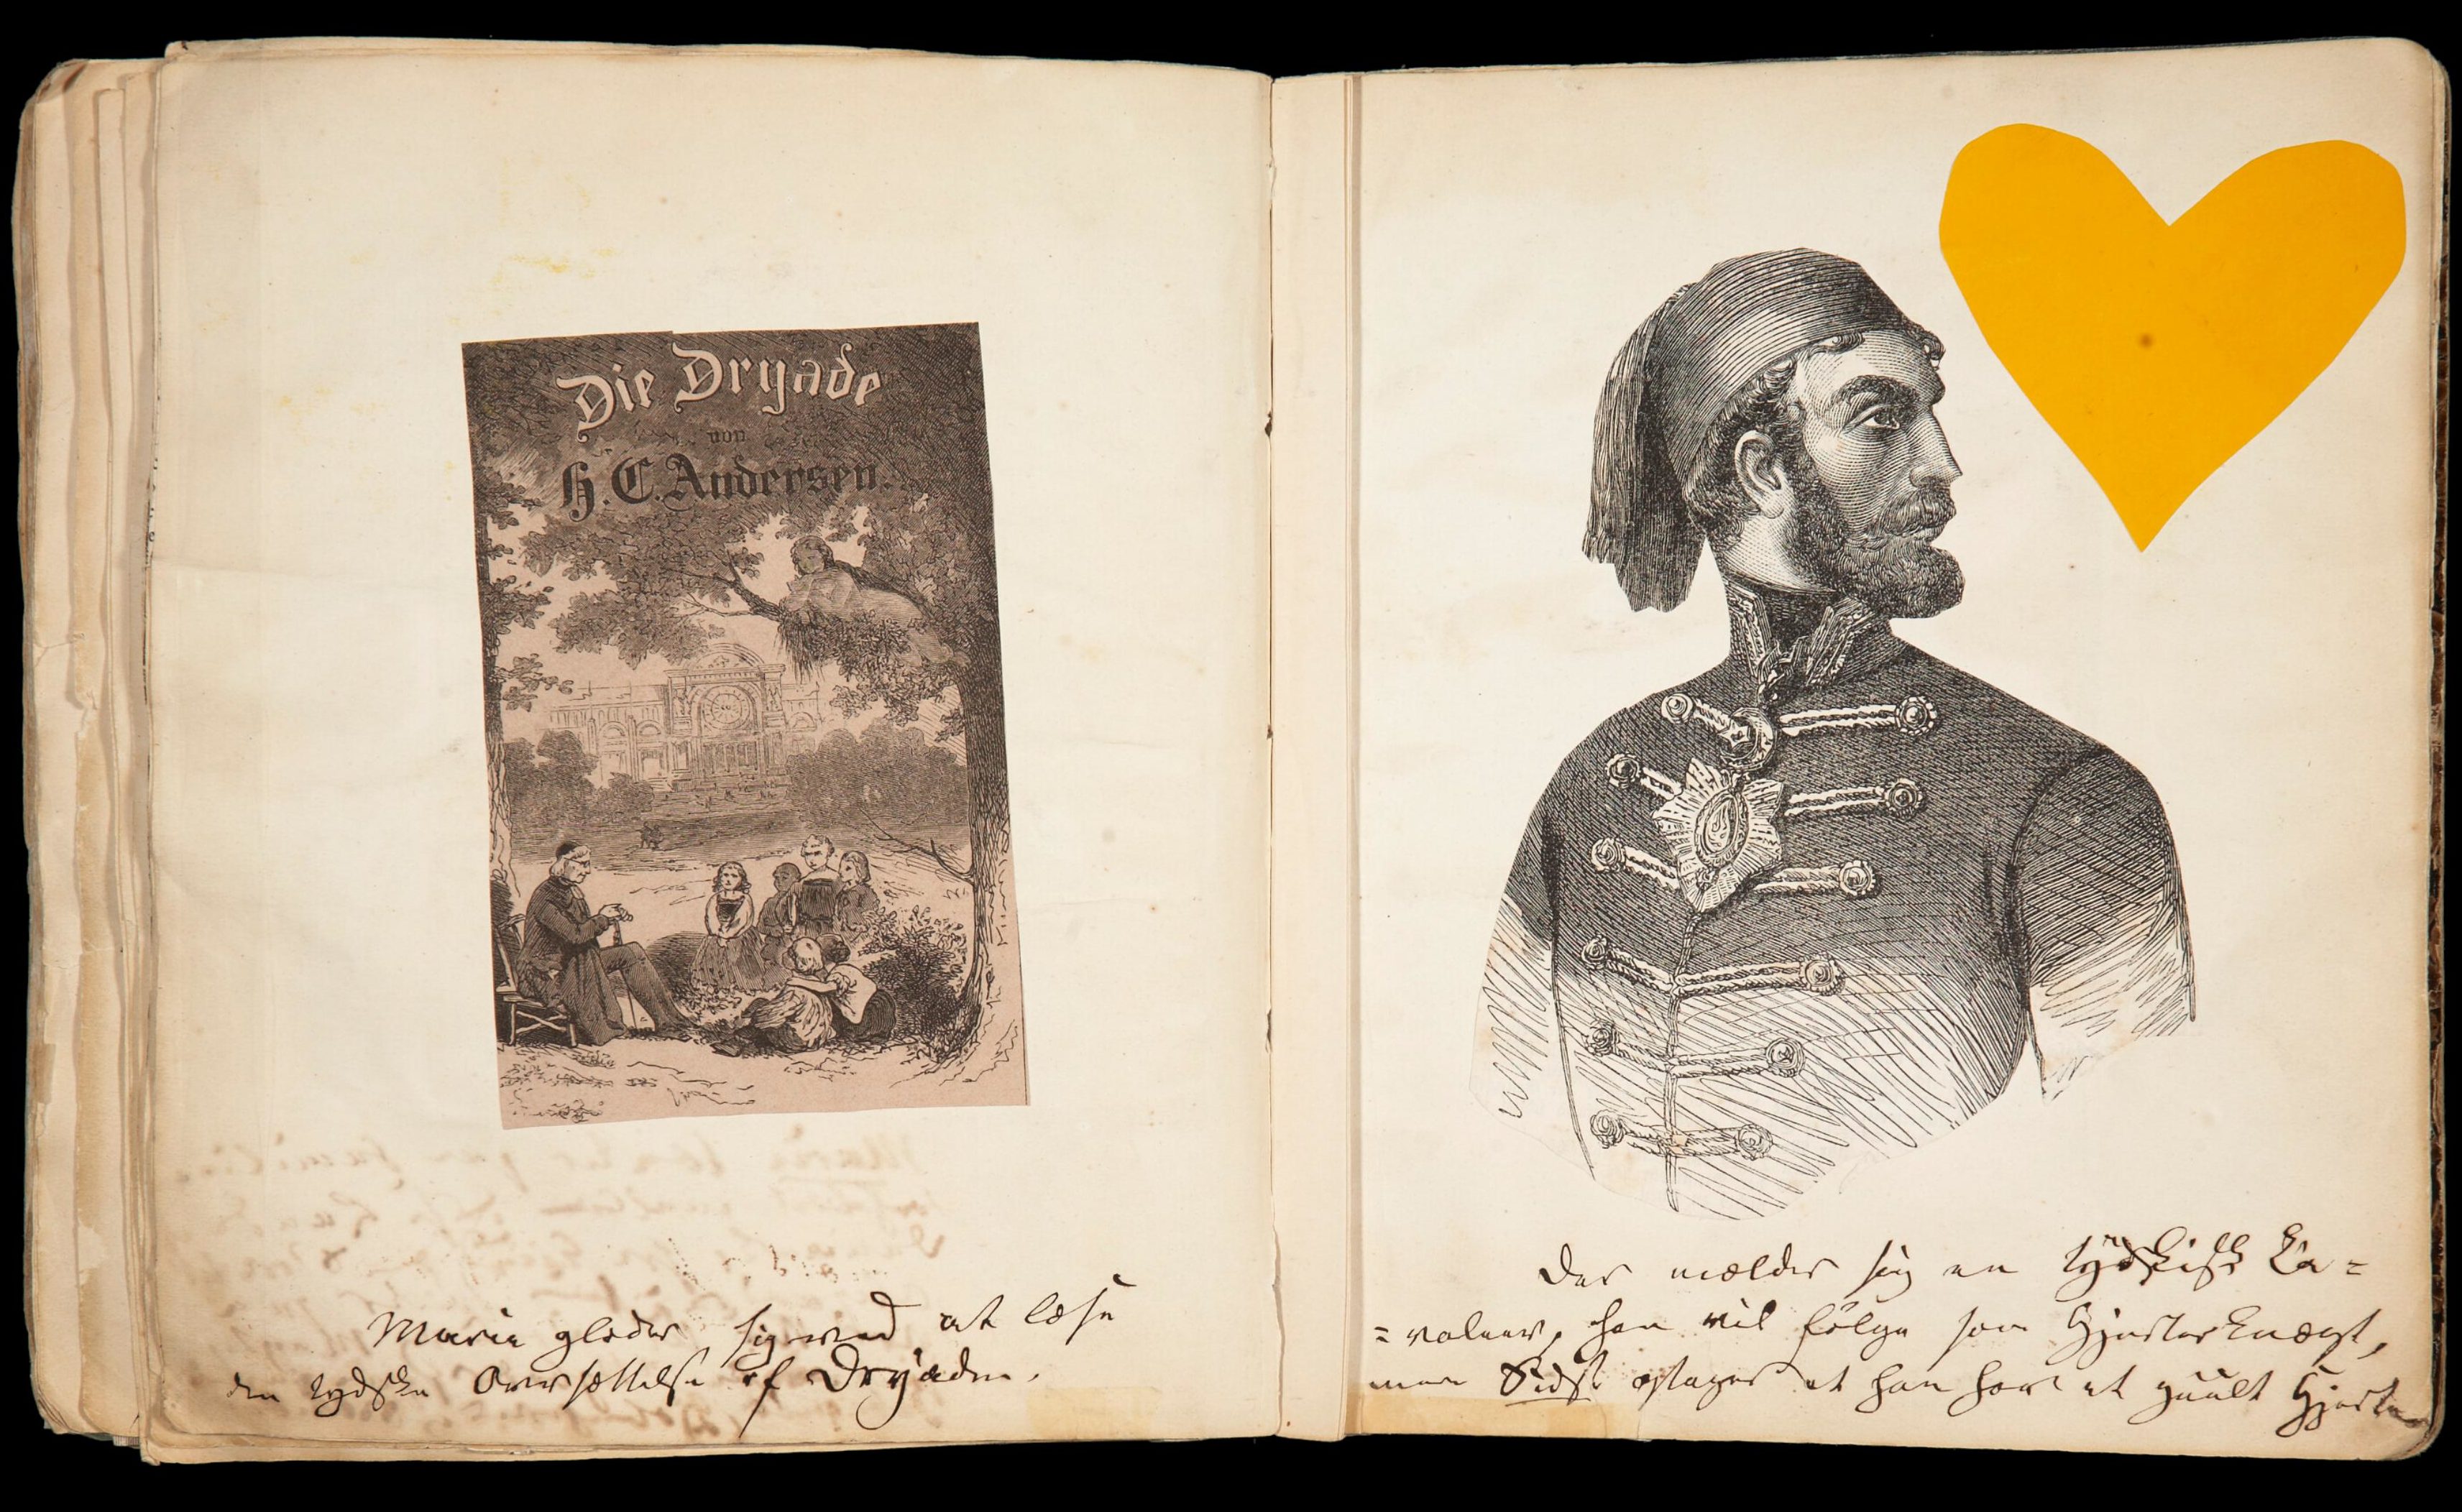 Die Dryade
von
H. C. Andersen.
Marie glæder sig ved at læse
den tydske Oversættelse af Dryaden.
Der melder sig en tydskisk Ca=
=valeer, han vil følge som Hjerterknægt,
men Sidst optages at han har et guult Hjerte